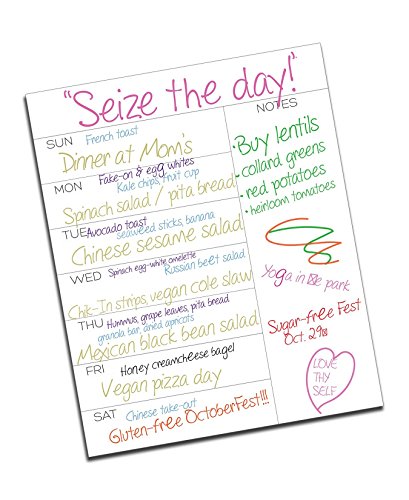 "Seize the day!"
SUN
French toast
Dinner at Mom's
MON
Fake-on & egg whites
Kale chips, fruit cup
Spinach salad / pita bread
TUE
Avocado toast
seaweed sticks, banana
Chinese sesame salad
WED
Spinach egg-white omelette
Russian beet salad
Chik-'n strips, vegan cole slaw
THU
Hummus, grape leaves, pita bread
granola bar, dried apricots
Mexican black bean salad
FRI
Honey creamcheese bagel
Vegan pizza day
SAT
Chinese take-out
Gluten-free OctoberFest!!!
NOTES
•Buy lentils
•collard greens
•red potatoes
•heirloom tomatoes
Yoga in park
Sugar-free Fest
Oct.
LOVE
THY
SELF